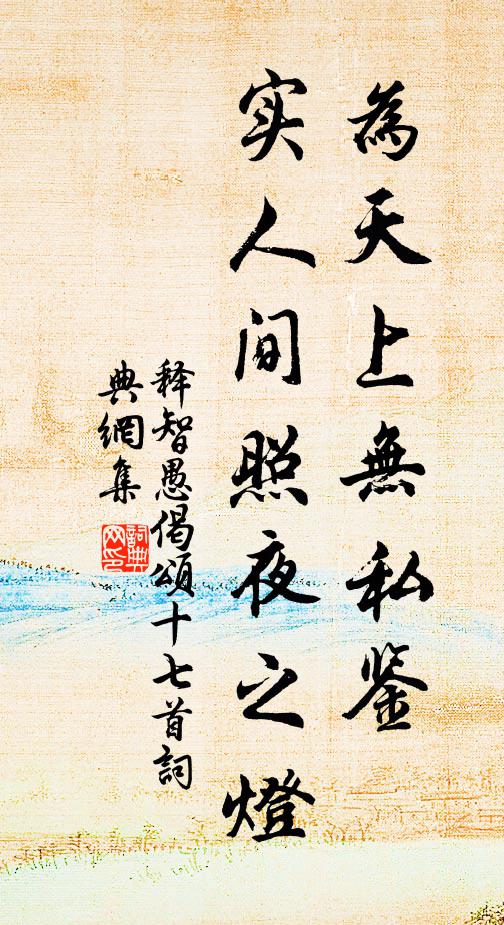 為天上無私鉴
实人间照夜之燈
释智愚偈頌十七首詞
典網集
詞典
网印